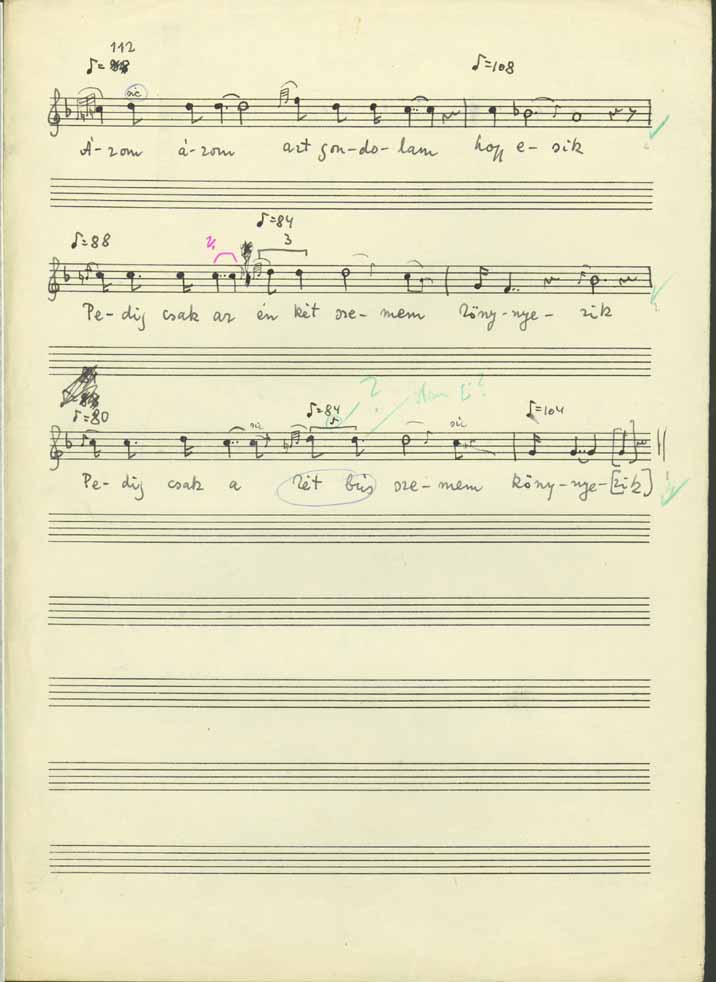 112
♪=
♪=108
sic
Á-zom á-zom azt gon-do-lam hogy e-sik
♪=88
♪=84
3
Pe-dig csak az én két sze-mem köny-nye-zik
♪=80
♪=84
♪=104
?
sic
sic
Pe-dig csak a két bús sze-mem köny-nye-[zik]